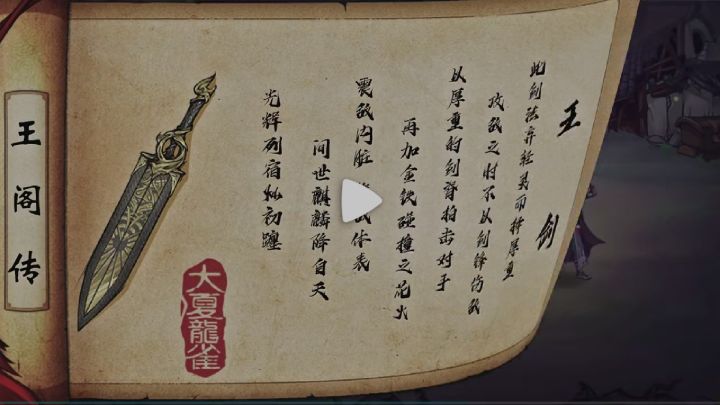 王剑
此剑法弃轻灵而择厚重
攻敌之时不以剑锋伤敌
以厚重的剑脊拍击对手
再加金铁碰撞之花火
震敌内脏 敌体表
间世麒麟降自天
光辉列宿灿初躔
大夏龍雀
王阁传